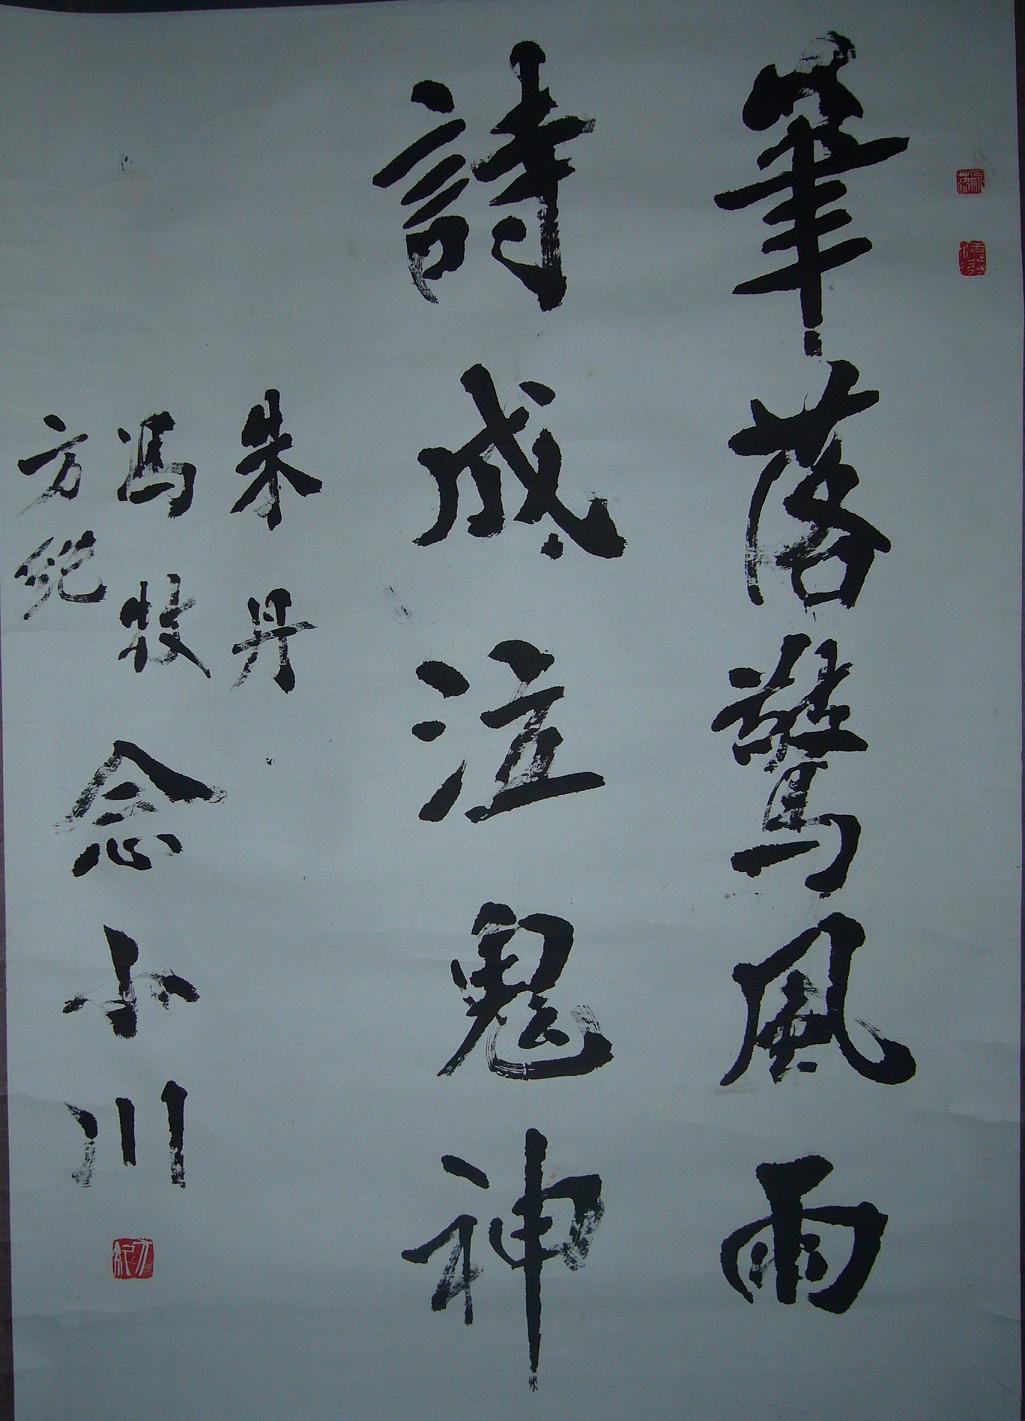 筆落驚風雨
詩成泣鬼神
朱丹
冯牧
方纪
念小川